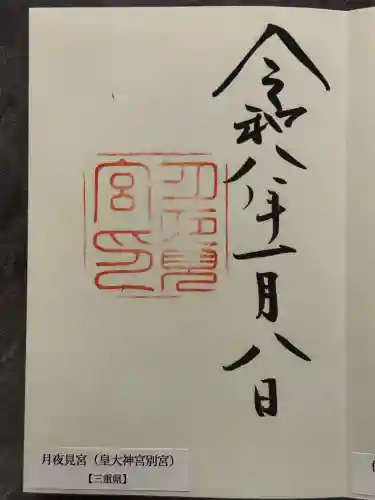 令和八年一月八日
月夜見宮印
月夜見宮（皇大神宮別宮）
【三重県】